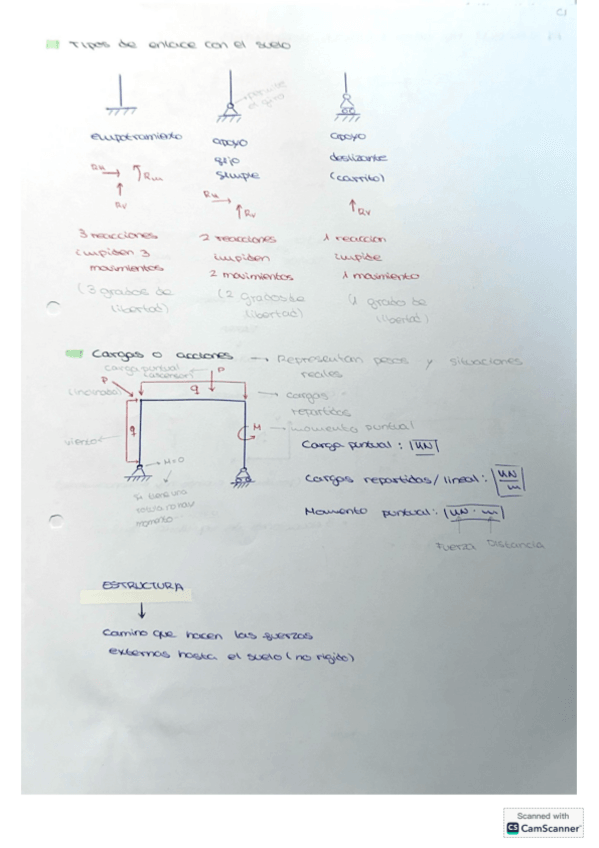 Tipos de enlace con el suelo
permite
el giro
empotramiento
apoyo
fijo
simple
apoyo
deslizante
(carrito)
RH
RM
RV
RH
RV
RV
3 reacciones
impiden 3
movimientos
(3 grados de
libertad)
2 reacciones
impiden
2 movimientos
(2 grados de
libertad)
1 reaccion
impide
1 movimiento
(1 grado de
libertad)
Cargas o acciones → Representan pesos y situaciones
reales
carga puntual
(ascensor)
P
P
(inclinada)
q
→ cargas
repartidas
q
viento
M → momento puntual
M=0
Si tiene una
rotula no hay
momento
Carga puntual: |kN|
Cargas repartidas/lineal: |kN/m|
Momento puntual: |kN·m|
Fuerza Distancia
ESTRUCTURA
↓
Camino que hacen las fuerzas
externas hasta el suelo (no rigido)
Scanned with
CS CamScanner